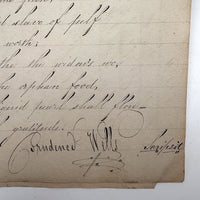 slave of pelf
worth;
the the widows wo,
he orphan food,
shall flow—
gratitude.
Prudence Wells Script